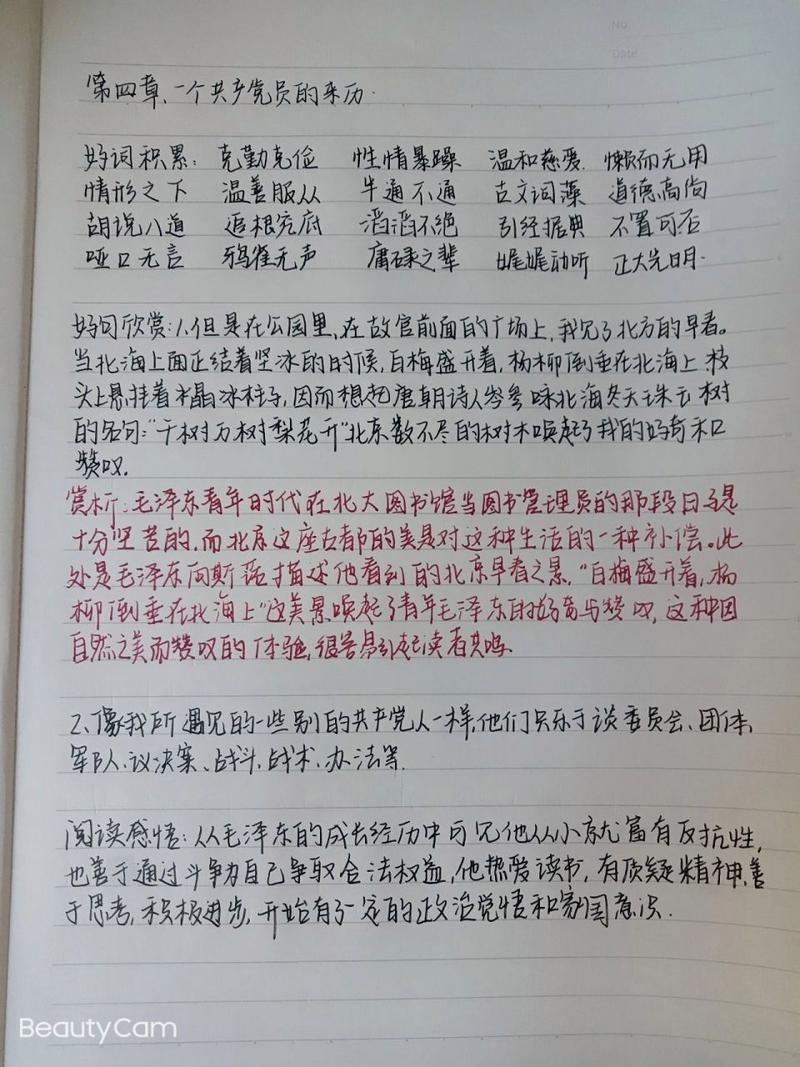 No
Date
第四章、一个共产党员的来历.
好词积累: 克勤克俭 性情暴躁 温和慈爱. 懒而无用
情形之下 温善服从 半通不通 古文词藻 道德高尚
胡说八道 追根究底 滔滔不绝 引经据典 不置可否
哑口无言 鸦雀无声 庸碌之辈 娓娓动听 正大光明.
好句欣赏:1、但是在公园里,在故宫前面的广场上,我见了北方的早春。
当北海上面正结着坚冰的时候,白梅盛开着,杨柳倒垂在北海上 枝
头上悬挂着水晶冰柱子,因而想起唐朝诗人岑参 咏北海冬天珠玉树
的名句:"千树万树梨花开"北京数不尽的树木唤起了我的好奇和
赞叹.
赏析:毛泽东青年时代在北大图书馆当图书管理员的那段日子是
十分坚苦的.而北京这座古都的美是对这种生活的一种补偿。此
处是毛泽东向斯诺描述他看到的北京早春之景,"白梅盛开着,杨
柳倒垂在北海上"这美景唤起了青年毛泽东的好奇与赞叹,这种因
自然之美而赞叹的体验,很容易引起读者共鸣.
2、像我所遇见的一些别的共产党人一样,他们只乐于谈委员会、团体、
军队、议决案、战斗、战术、办法等.
阅读感悟:从毛泽东的成长经历中可见他从小就富有反抗性,
也善于通过斗争为自己争取合法权益,他热爱读书,有质疑精神,善
于思考,积极进步,开始有了一定的政治觉悟和家国意识.
BeautyCam